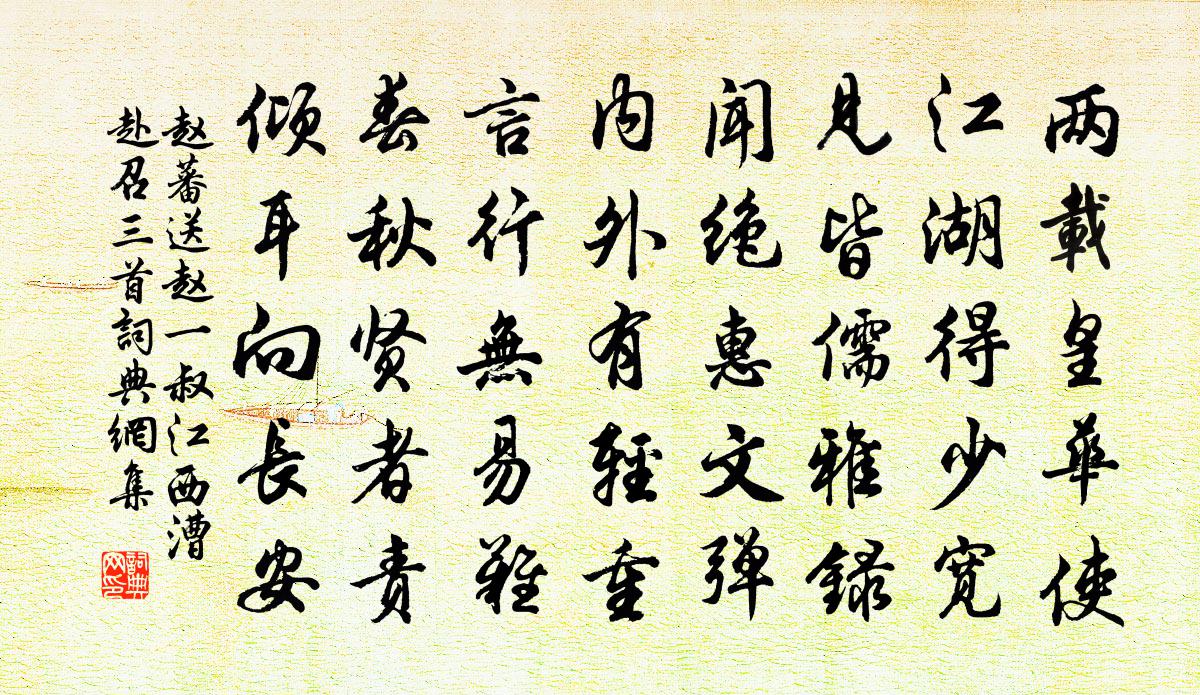 两載皇華使
江湖得少寬
見皆儒雅録
聞绝惠文弹
内外有輕重
言行無易難
春秋贤者责
倾耳向長安
赵蕃送赵一叔江西漕
赴召三首詞典網集
詞典网印